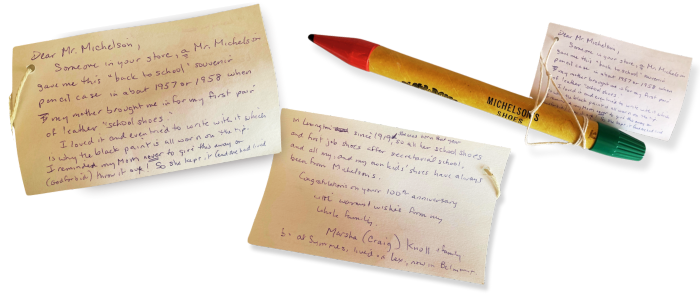 Dear Mr. Michelson,
Someone in your store, a Mr. Michelson
gave me this "back to school" souvenir
pencil case in about 1957 or 1958 when
my mother brought me in for my first pair
of leather "school shoes."
I loved it and even tried to write with it which
is why the black paint is all worn on the tip.
I reminded my Mom never to give this away or
(God forbid) throw it away! So she kept it (and she had lived
in Lexington since 1919), so all her school shoes
and first job shoes after secretarial school
and all my and my own kids' shoes have always
been from Michelsons.
Congratulations on your 100th anniversary
with warmest wishes from my
whole family.
Marsha (Craig) Knoll & family
at Symmes, lived in Lex, now in
MICHELSON'S
SHOES
Dear Mr. Michelson,
Someone in your store, a Mr. Michelson
gave me this "back to school" souvenir
pencil case in about 1957 or 1958 when
my mother brought me in for my first pair